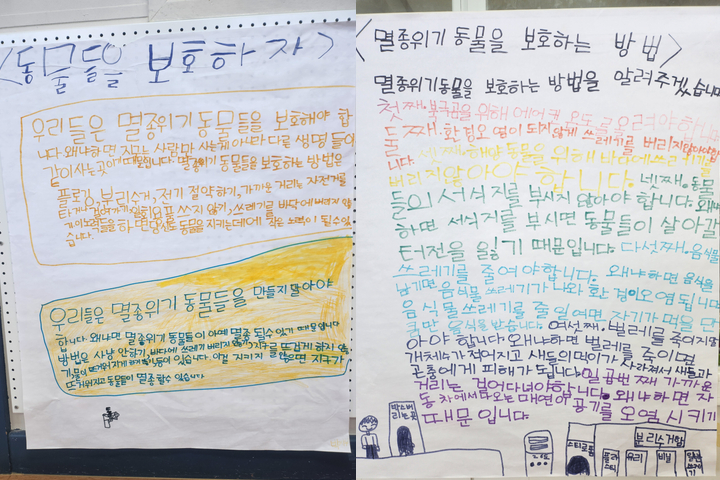 <동물들을 보호하자>
우리들은 멸종위기 동물들을 보호해야 합
니다 왜냐하면 지구는 사람만 사는게 아니라 다른 생명들이
같이사는 곳이기 때문입니다. 멸종위기 동물들을 보호하는 방법은
플로깅, 분리수거, 전기 절약하기, 가까운 거리는 자전거를
타거나 걸어가기 일회용품 쓰지 않기, 쓰레기를 바다에 버리지 않기
등이 있습니다.
우리들은 멸종위기 동물들을 만들지 말아야
합니다 왜냐면 멸종위기 동물들이 아예 멸종 될수 있기 때문입니다
방법은 사냥 안하기, 바다에 쓰레기 버리지 않기, 지구를 뜨겁게 하지 않
기, 등이 있습니다 이걸 지키지 않으면 지구가
뜨거워지고 동물들이 멸종할수 있습니다.
<멸종위기 동물을 보호하는 방법>
멸종위기동물을 보호하는 방법을 알려주겠습니다
첫째. 북극곰을 위해 에어컨 온도를 올려야합니다
둘째. 환경오염이 되지않게 쓰레기를 버리지말아야합
니다. 셋째. 해양 동물을 위해 바다에 쓰레기를
버리지않아야 합니다. 넷째. 동물
들의 서식지를 부시지 않아야 합니다 왜냐
하면 서식지를 부시면 동물들이 살아갈
터전을 잃기 때문입니다. 다섯째. 음식물
쓰레기를 줄여야합니다. 왜냐하면 음식을
남기면 음식물 쓰레기가 나와 환경이오염 됩니다
음식물쓰레기를 줄일여면 자기가 먹을 만
큼만 음식을 받습니다. 여섯째. 벌레를 죽이지말
아야 합니다 왜냐하면 벌레를 죽이면
개체수가 적어지고 새들의먹이가 사라져서 새들과
곤충에게 피해가 됩니다. 일곱번째 가까운
거리는 걸어다녀야합니다. 왜냐하면 자
동차에서 나오는 매연이 공기를 오염시키기
때문입니다.
박스버리는곳
스티로폼
분리수거함
플라스틱
유리
비닐
일반쓰레기